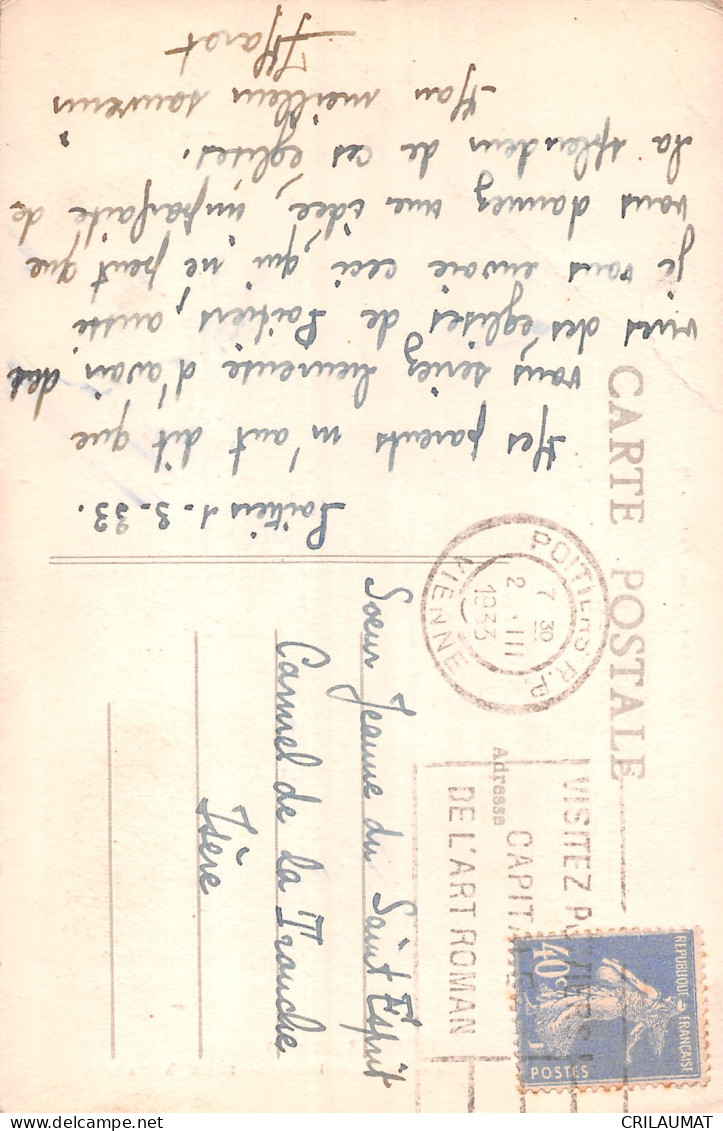 CARTE POSTALE
Poitiers 1-3-33.
Mes parents m'ont dit que
vous seriez heureuse d'avoir des
vues des églises de Poitiers, aussi
je vous envoie ceci, qui ne peut que
vous donner une idée, imparfaite de
la splendeur de ces églises.
Mon meilleur souvenir
POITIERS R.P.
7 30
2 . III
1933
VIENNE
VISITEZ POITIERS
CAPITALE
DE L'ART ROMAN
Adresse
REPUBLIQUE FRANÇAISE
40c
POSTES
Soeur Jeanne du Saint Esprit
Carmel de la Tronche
Isère
CRILAUMAT